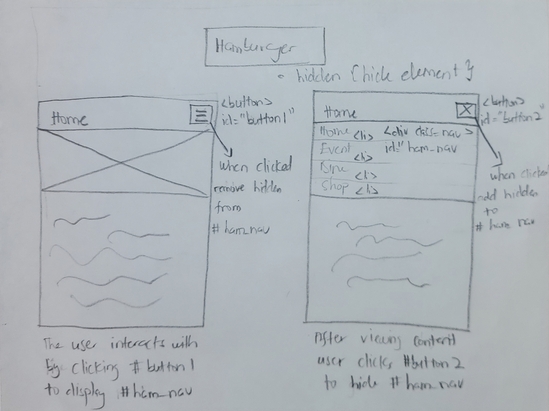 Hamburger
• hidden {hide element}
Home
<button>
id="button1"
when clicked
remove hidden
from
# ham_nav
The user interacts with
By clicking #button1
to display #ham_nav
Home
<button>
id="button2"
Home <li> <div class=nav>
Event id="ham_nav
<li>
<li>
Shop <li>
when clicked
add hidden
to
# ham_nav
After viewing content
user clicks #button2
to hide #ham_nav